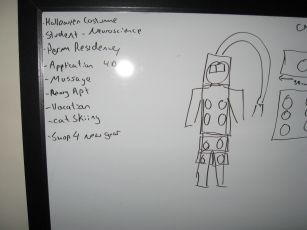 - Halloween Costume
Student - Neuroscience
- Perm Residency
- Application 4.0
- Massage
- Apt
- Vacation
- cat Skiing
- Swap 4 new gear